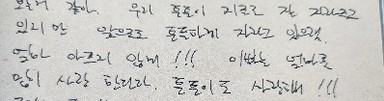 모르게 같아. 우리 튼튼이 지금도 잘 자라고
있지만 앞으로도 튼튼하게 자라고 있으렴.
엄마 아프지 않게!!! 아빠는 엄마를
많이 사랑 한단다. 튼튼이도 사랑해!!!